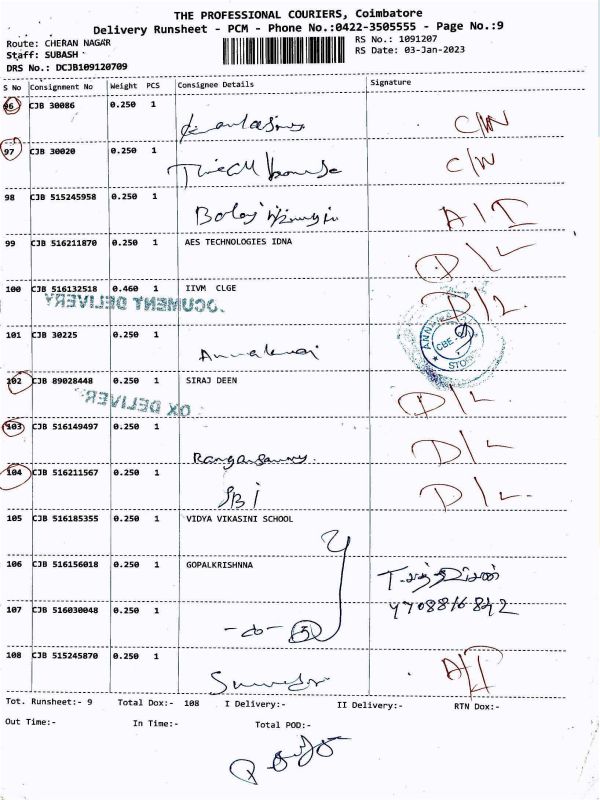 THE PROFESSIONAL COURIERS, Coimbatore
Delivery Runsheet - PCM - Phone No.:0422-3505555 - Page No.:9
Route: CHERAN NAGAR RS No.: 1091207
Staff: SUBASH RS Date: 03-Jan-2023
DRS No.: DCJB109120709
S No Consignment No Weight PCS Consignee Details Signature
96 CJB 30086 0.250 1
C/N
97 CJB 30020 0.250 1
C/N
98 CJB 515245958 0.250 1
Balaji A/I
99 CJB 516211870 0.250 1 AES TECHNOLOGIES IDNA
D/L
100 CJB 516132518 0.460 1 IIVM CLGE
D/L
DOCUMENT DELIVERY
101 CJB 30225 0.250 1
CBE
STO
102 CJB 89028448 0.250 1 SIRAJ DEEN
D/L
DOX DELIVERY
103 CJB 516149497 0.250 1
Rangasamy. D/L
104 CJB 516211567 0.250 1
SBI D/L
105 CJB 516185355 0.250 1 VIDYA VIKASINI SCHOOL
106 CJB 516156018 0.250 1 GOPALKRISHNNA
107 CJB 516030048 0.250 1
108 CJB 515245870 0.250 1
A/I
Tot. Runsheet:- 9 Total Dox:- 108 I Delivery:- II Delivery:- RTN Dox:-
Out Time:- In Time:- Total POD:-